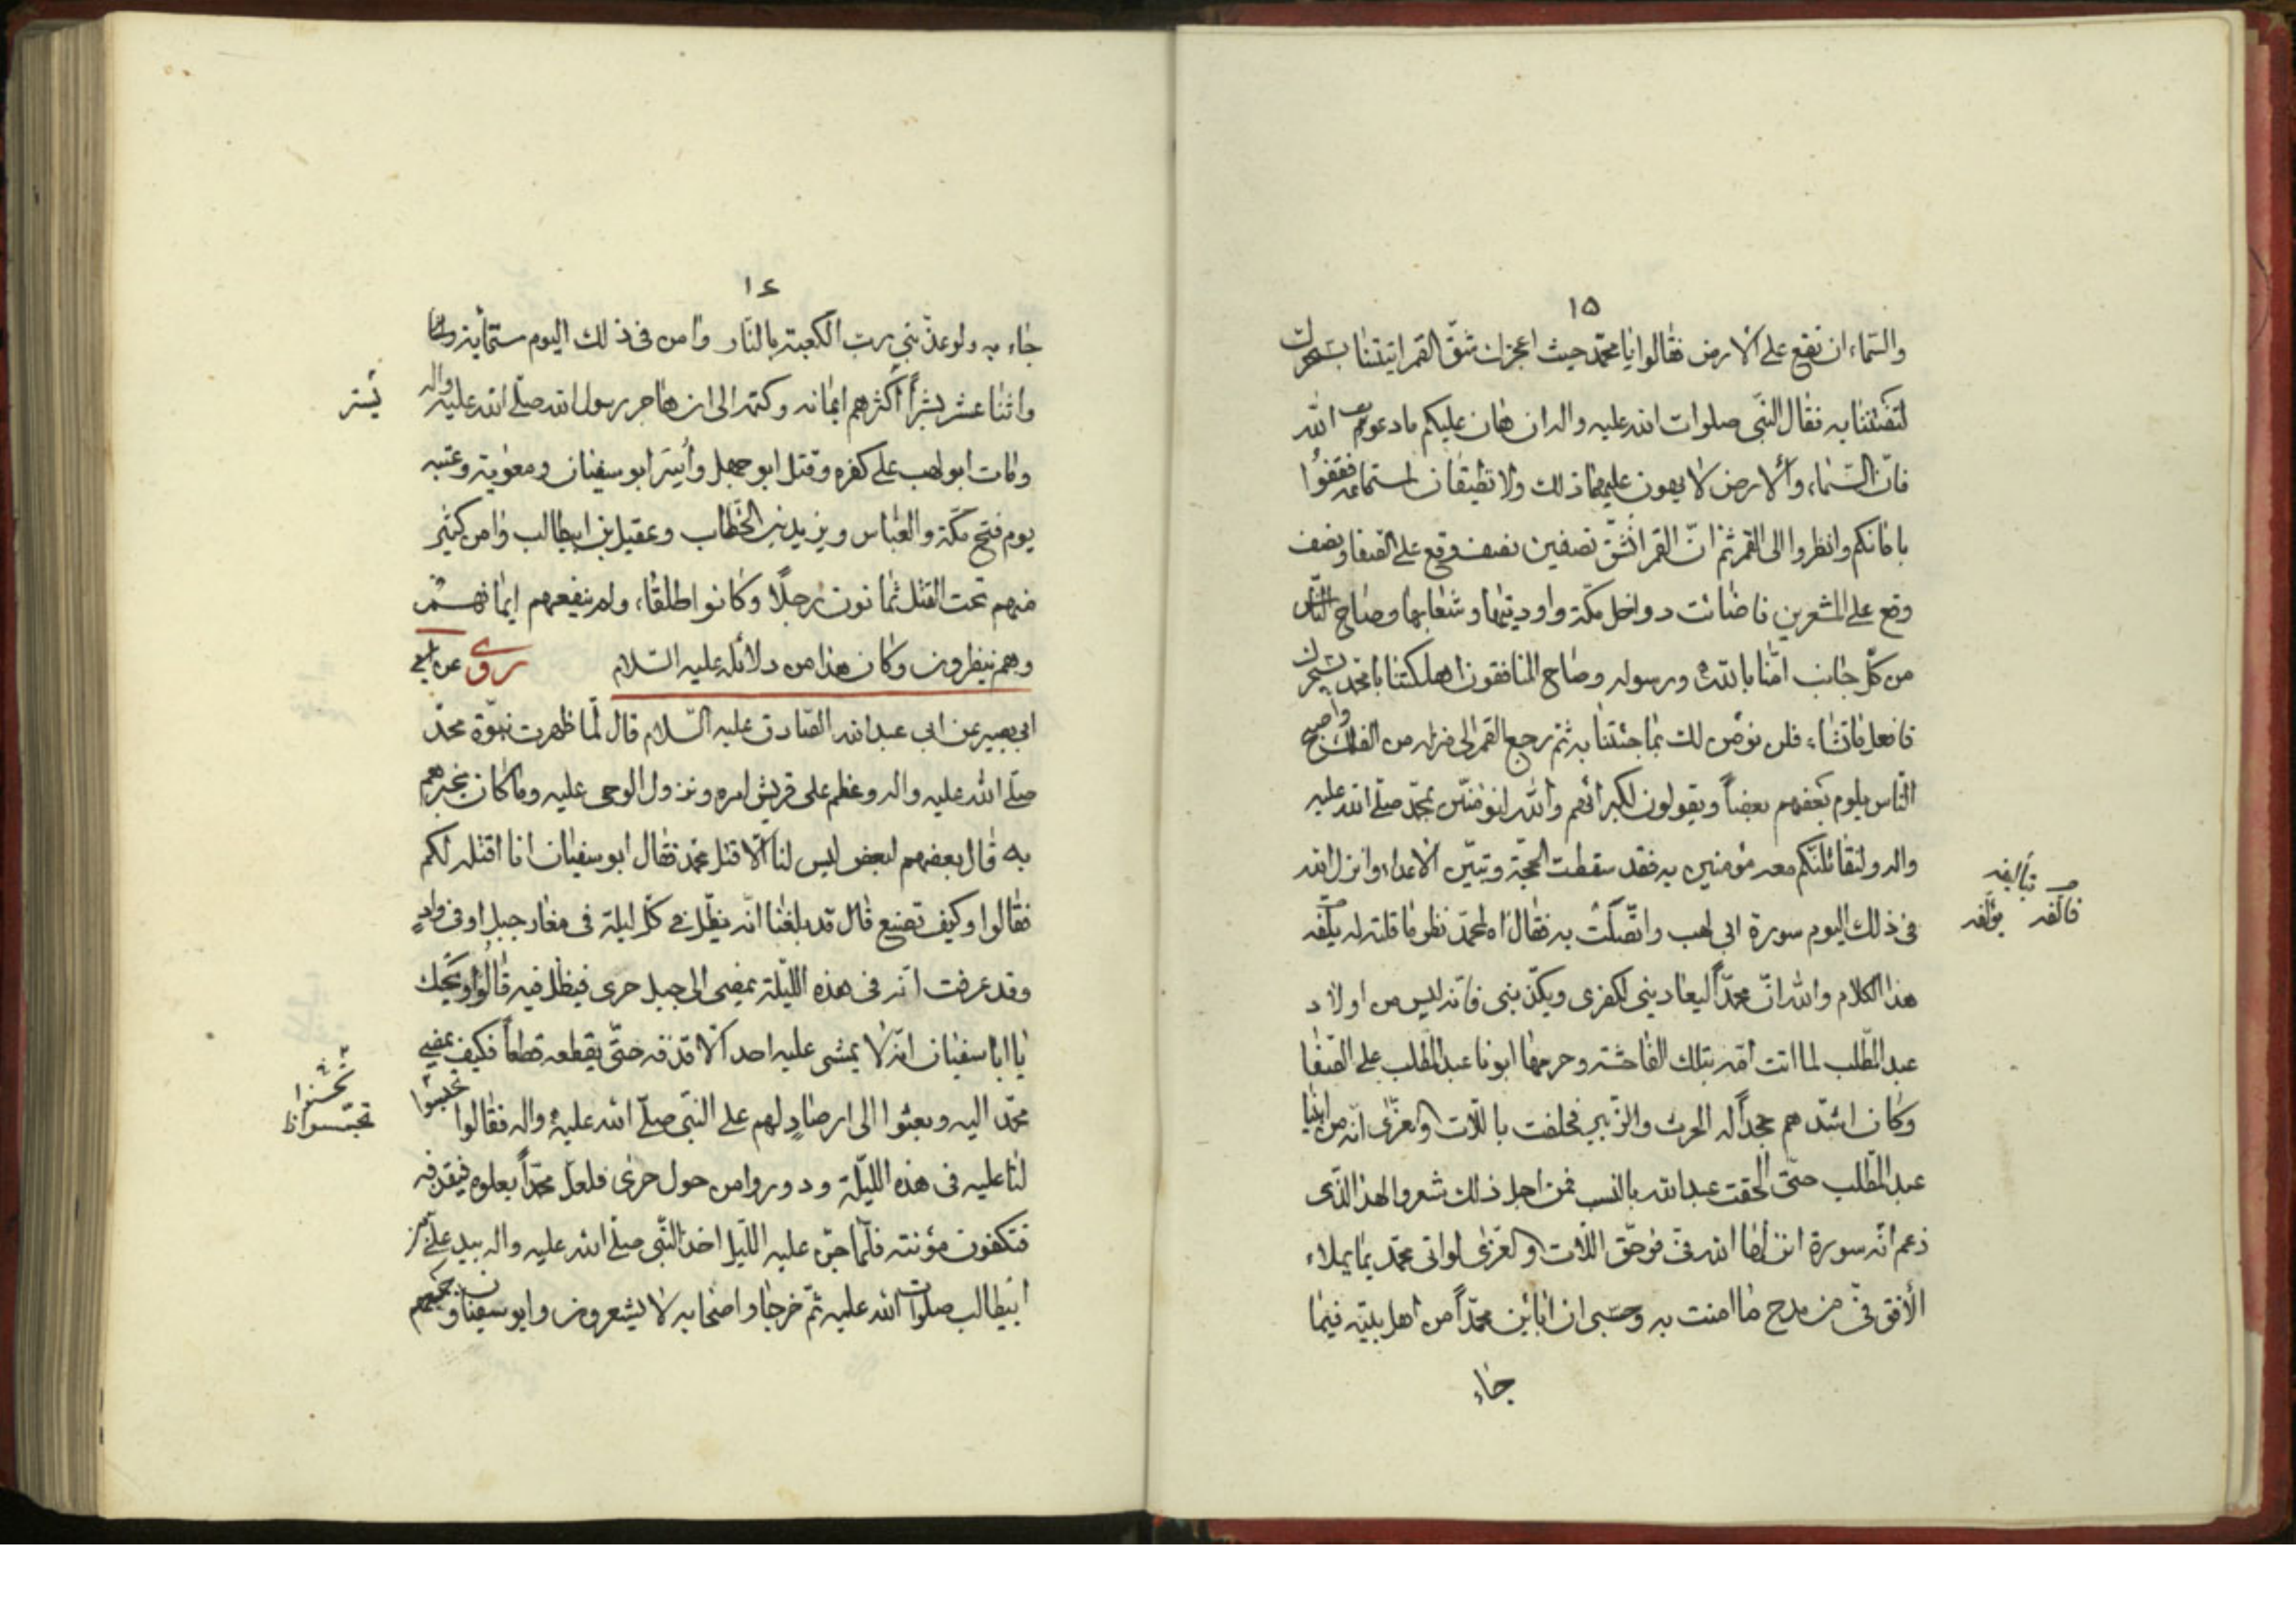 ١٥
والسّماء ان تقع على الارض فقالوا يا محمّد حيث اعجزك شقّ القمر اتيتنا بسحرك
لتفتننا به فقال النّبى صلوات الله عليه واله ان هان عليكم ما دعوتم الله
فانّ السّماء والارض لا يهون عليهما ذلك ولا تطيقان استماعه فقفوا
باماكنكم وانظروا الى القمر ثمّ انّ القمر انشقّ نصفين نصف وقع على الصفا ونصف
وقع على المشعرين فاضائت دواخل مكّة واوديتها وشعابها وصاح النّاس
من كلّ جانب امنّا بالله ورسوله وصاح المنافقون اهلكتنا يا محمّد بسحرك
فافعل ما تشاء فلن نؤمن لك بما جئتنا به ثمّ رجع القمر الى منزله من الفلك واصبح
النّاس يلوم بعضهم بعضاً ويقولون لكبرائهم والله لنؤمننّ بمحمّد صلّى الله عليه
واله ولنقاتلنّكم معه مؤمنين به فقد سقطت الحجّة وتبيّن الاعذار وانزل الله
فى ذلك اليوم سورة ابى لهب واتّصلت به فقال اه لمحمّد نظر ما قلته له يكلّفه
تأليفه
فالفه مؤلّفه
هذا الكلام والله انّ محمّداً ليعادينى لكفرى ويكذّبنى فانّه ليس من اولاد
عبد المطّلب لما اتت امّه بتلك الفاحشة وحرمها ابونا عبد المطّلب على الصّفا
وكان اشدّهم جحداً له الحرث والزّبير فحلفت باللّات والعزّى انّه من ابناء
عبد المطّلب حتّى الحقت عبد الله بالنسب فمن اجل ذلك شعر والهذا الّذى
زعم انّه سورة انزلها الله فىّ فوحقّ اللّات والعزّى لو اتى محمّد بما يملاء
الأفق فىّ من مدح ما امنت به وحسبى ان اباين محمّداً من اهل بيته فيما
جاء
١٤
جاء به ولو عذّبنى ربّ الكعبة بالنّار وامن فى ذلك اليوم ستّمأية
واثنا عشر بشراً اكثرهم ايمانه وكتمه الى ان هاجر رسول الله صلّى الله عليه واله
يُستر
ومات ابو لهب على كفره وقتل ابو جهل وأسِر ابو سفيان ومعوية وعتبه
يوم فتح مكّة والعبّاس ويزيد بن الخطّاب وعقيل بن ابيطالب وامن كثير
منهم تحت القتل ثمانون رجلاً وكانوا طلقاء ولم ينفعهم ايمانهم
وهم ينظرون وكان هذا من دلائله عليه السّلام روى عن ابى
ابى بصير عن ابى عبد الله الصّادق عليه السّلام قال لمّا ظهرت نبوّة محمّد
صلّى الله عليه واله وعظم على قريش امره ونزول الوحى عليه وما كان يخبرهم
به قال بعضهم لبعض ليس لنا الّا قتل محمّد فقال ابو سفيان انا اقتله لكم
فقالوا وكيف تصنع قال قد بلغنا انّه يظلّ فى كلّ ليلة فى مغار جبل او فى وادٍ
وقد عرفت انّه فى هذه اللّيلة يمضى الى جبل حرى فيظلّ فيه قالوا ويحك
يا ابا سفيان انّه لا يمشى عليه احد الّا قذفه حتّى يقطعه قطعاً فكيف يمضى
محمّد اليه وبعثوا الى ارصادٍ لهم على النبىّ صلّى الله عليه واله فقالوا
تجسّسوا ظ
لنا عليه فى هذه اللّيلة ودوروا من حول حرى فلعلّ محمّداً يعلوه فيقذفه
فتكفون مؤنته فلمّا جنّ عليه اللّيل اخذ النّبى صلّى الله عليه واله بيد علىّ بن
ابيطالب صلوات الله عليه ثمّ خرجا واصحابه لا يشعرون وابو سفيان وجميعهم